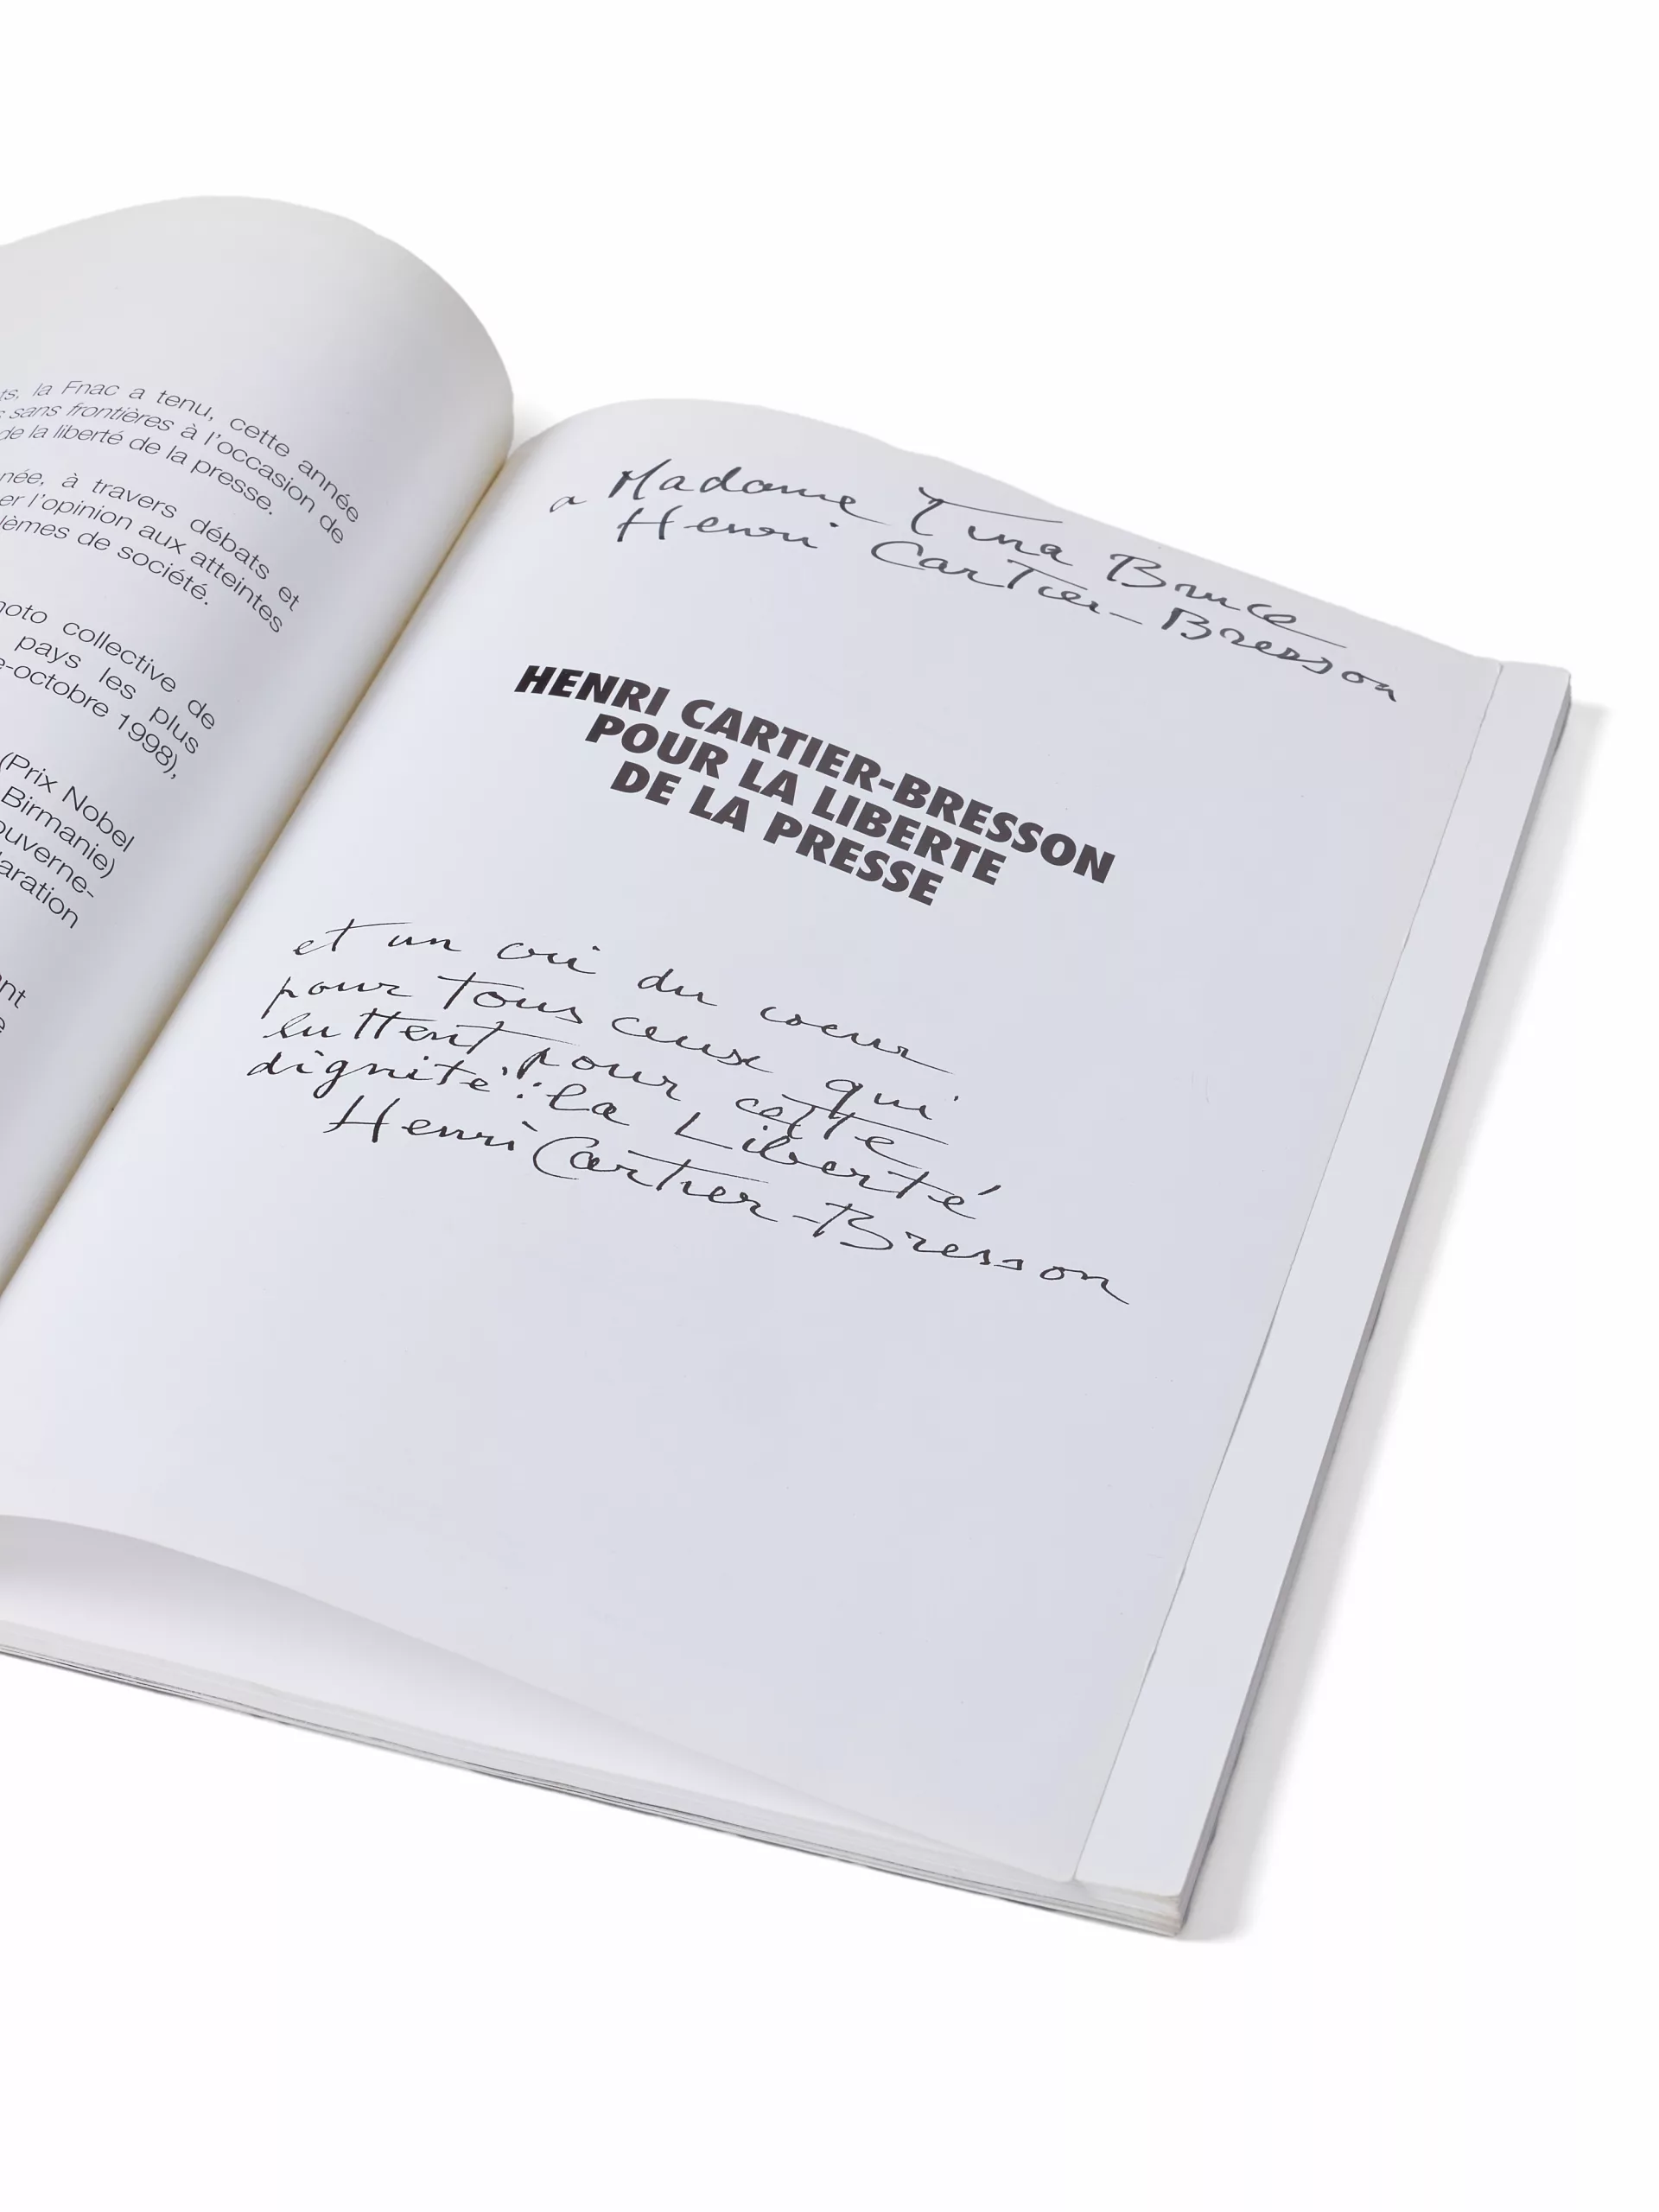 ts, la Fnac a tenu, cette année
sans frontières à l'occasion de
de la liberté de la presse.
née, à travers débats et
er l'opinion aux atteintes
lèmes de société.
hoto collective de
pays les plus
e-octobre 1998),
(Prix Nobel
Birmanie)
ouverne-
laration
ant
e
a Madame Tina Bruce
Henri Cartier-Bresson
HENRI CARTIER-BRESSON
POUR LA LIBERTE
DE LA PRESSE
et un cri du coeur
pour tous ceux qui
luttent pour cette
dignité : la Liberté
Henri Cartier-Bresson